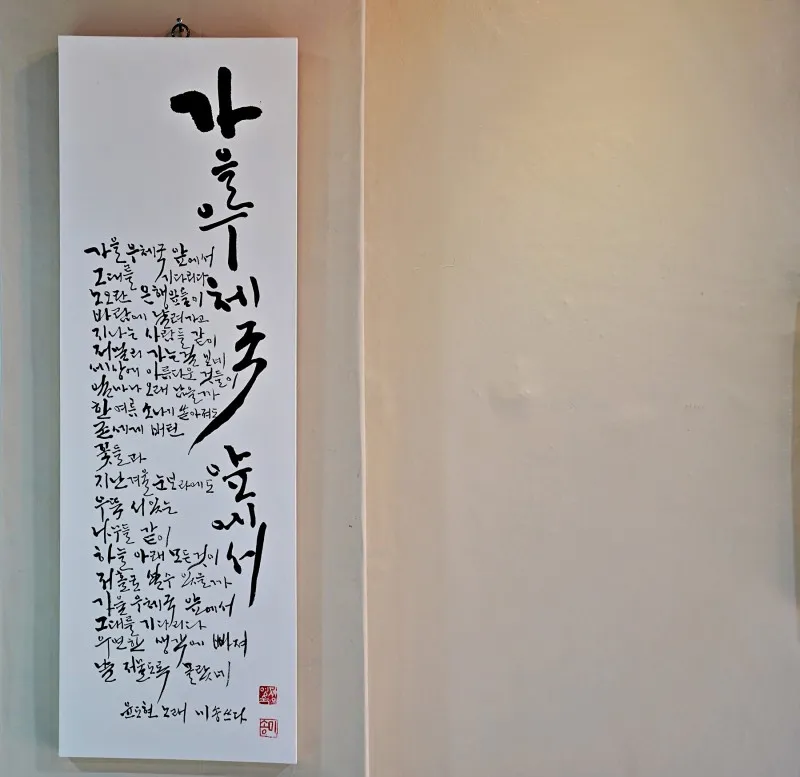 가을 우체국 앞에서
가을 우체국 앞에서
그대를 기다리다
노오란 은행잎들이
바람에 날려가고
지나는 사람들 같이
저멀리 가는걸 보네
세상에 아름다운 것들이
얼마나 오래 남을까
한여름 소나기 쏟아져도
굳세게 버틴
꽃들과
지난겨울 눈보라에도
우뚝 서있는
나무들 같이
하늘 아래 모든것이
저홀로 설수 있을까
가을 우체국 앞에서
그대를 기다리다
우연한 생각에 빠져
날 저물도록 몰랐네
윤도현 노래 미송쓰다